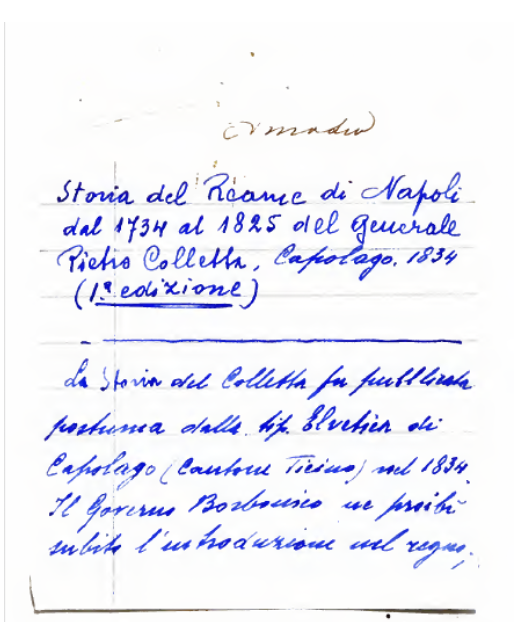 Amadio
Storia del Reame di Napoli
dal 1734 al 1825 del Generale
Pietro Colletta, Capolago. 1834
(1ª edizione)
La Storia del Colletta fu pubblicata
postuma dalla tip. Elvetica di
Capolago (Cantone Ticino) nel 1834.
Il Governo Borbonico ne proibì
subito l'introduzione nel regno,